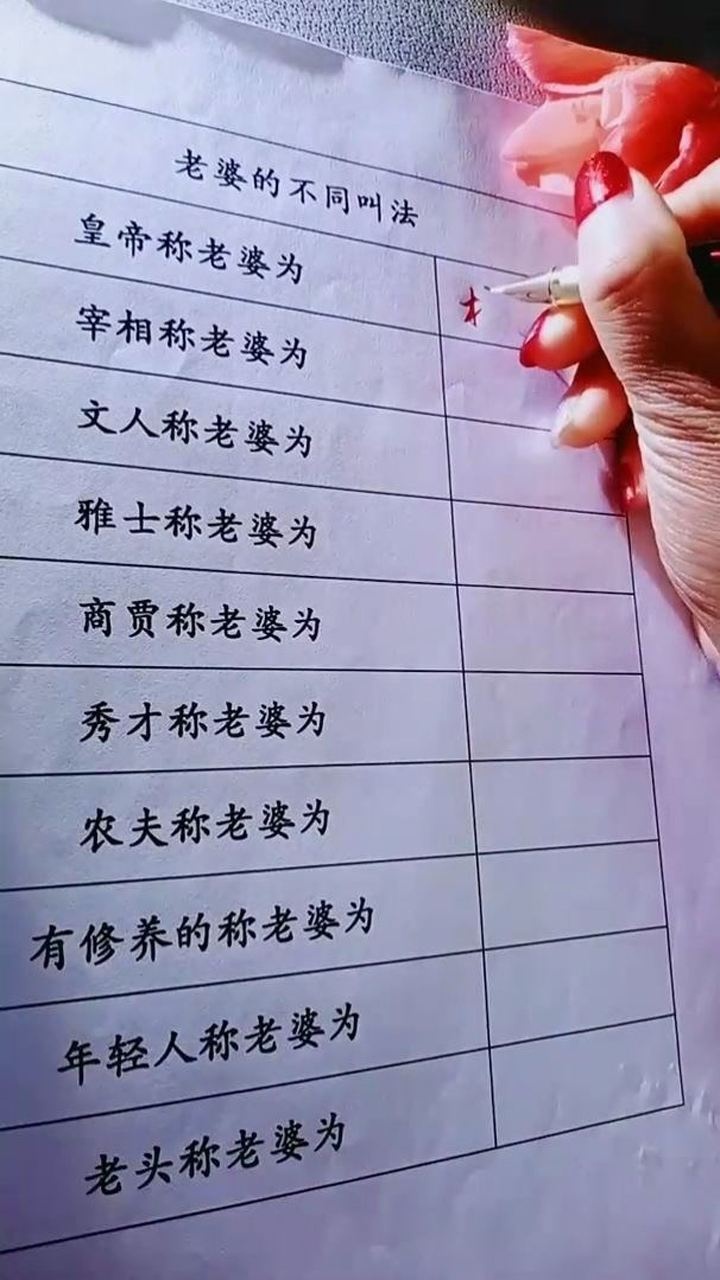 老婆的不同叫法
皇帝称老婆为
宰相称老婆为
文人称老婆为
雅士称老婆为
商贾称老婆为
秀才称老婆为
农夫称老婆为
有修养的称老婆为
年轻人称老婆为
老头称老婆为